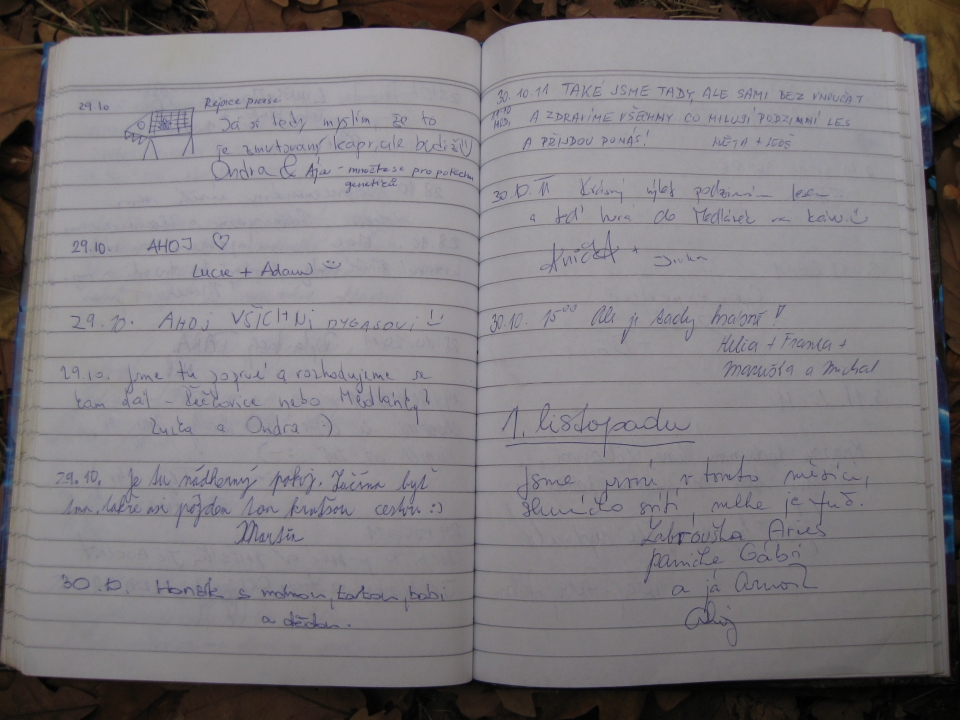 29.10
Rejnoce prase
Já si tady myslím že to
je zmutovaný kapr, ale budiž :)
Ondra & Ája - množte se pro potěchu
genetiků
29.10. AHOJ ♡
Lucie + Adam :)
29.10. AHOJ VŠICHNI DYGASOVI !!
29.10. Jsme tu poprvé a rozhodujeme se
kam dál - Řečkovice nebo Medlánky?
Zuzka a Ondra :)
29.10. Je tu nádherný pokoj. Začíná být
tma, takže asi půjdem tou kratšou cestou :)
Martin
30.10. Honzík s mamou, taťkou, babi
a dědou.
30.10.11 TAKÉ JSME TADY, ALE SAMI BEZ VNOUČAT
A ZDRAVÍME VŠECHNY CO MILUJÍ PODZIMNÍ LES
A PŘIJDOU PO NÁS!
30.10.11 Krásný výlet podzimním lesem
a teď hurá do Medlánek na kávu
30.10. 15⁰⁰ Ale je tady krásně!
+ Franta +
Maruška a Michal
1. listopadu
Jsme první v tomto měsíci,
sluníčko svítí, mlha je fuč.
Labrouška Aries
panička Gábi
a já Arnošt
Ahoj